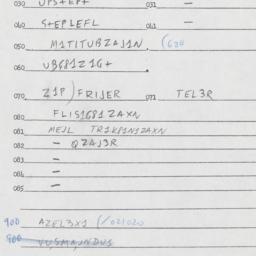 030 UPSTEPT 031 —
040 STEPLEFL 041 —
050 M1TITUBZAJ1N (620
060 UBG81Z1G+ .
070 Z1P) FRIJER 071 TEL3R
080 FLIS1G81ZAXN
081 MEJL TR1K81N1ZAXN
082 — QZAJ3R
083 —
084 —
085 —
900 AZEL3X1 (/021020
900